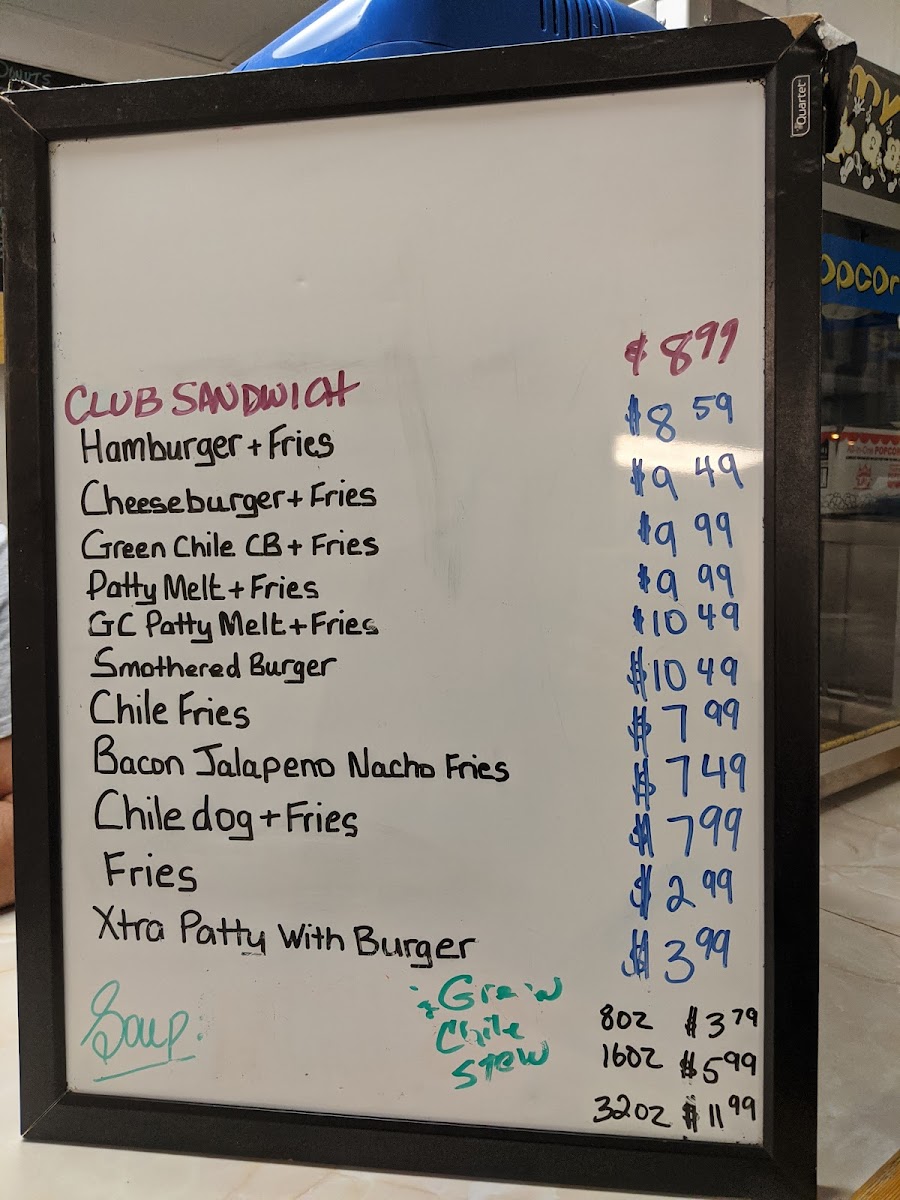 Quartet
opcor
CLUB SANDWICH $8 99
Hamburger + Fries $8 59
Cheeseburger + Fries $9 49
Green Chile CB + Fries $9 99
Patty Melt + Fries $9 99
GC Patty Melt + Fries $10 49
Smothered Burger $10 49
Chile Fries $7 99
Bacon Jalapeno Nacho Fries $7 49
Chile dog + Fries $7 99
Fries $2 99
Xtra Patty With Burger $3 99
Soup: Chile stew
8oz $3 79
16oz $5 99
32oz $11 99